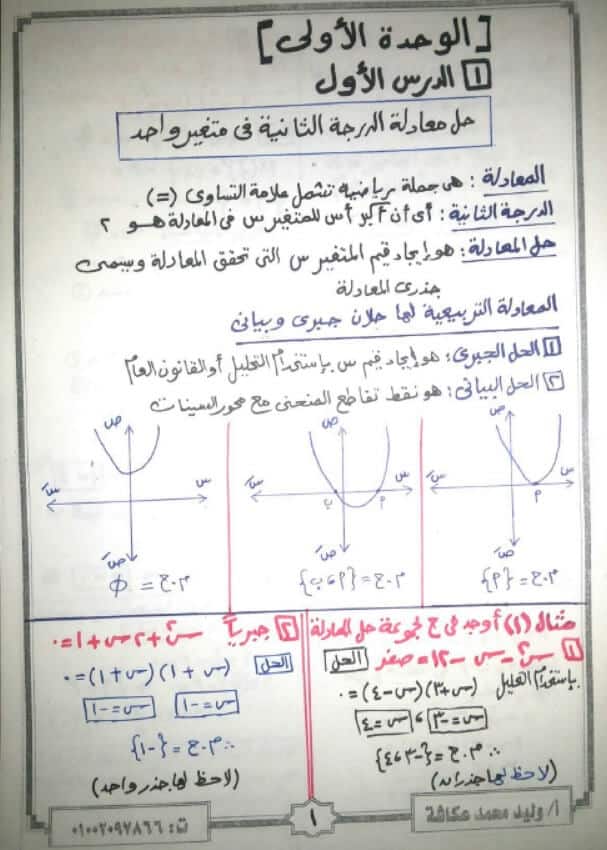 [الوحدة الأولى]
١ الدرس الأول
حل معادلة الدرجة الثانية فى متغير واحد
المعادلة : هى جملة رياضيه تشمل علامة التساوى (=)
الدرجة الثانية : أى أن أكبر أس للمتغير س فى المعادلة هو ٢
حل المعادلة : هو إيجاد قيم المتغير س التى تحقق المعادلة وتسمى
جذرى المعادلة
المعادلة التربيعية لها حلان جبرى وبيانى
١ الحل الجبرى : هو إيجاد قيم س بإستخدام التحليل أو القانون العام
٢ الحل البيانى : هو نقط تقاطع المنحنى مع محور السينات
ص
س
سَ
صَ
م
م.ح = {م}
ص
سَ
م
ب
صَ
م.ح = {م ، ب}
ص
س
سَ
صَ
م.ح = ∅
مثال (١) أوجد فى ح مجموعة حل المعادلة
١ س٢ - س - ١٢ = صفر
الحل
بإستخدام التحليل
(س + ٣)(س - ٤) = ٠
س = -٣ ، س = ٤
∴ م.ح = {-٣ ، ٤}
(لاحظ لها جذران)
٢ جبرياً س٢ + ٢س + ١ = ٠
الحل
(س + ١)(س + ١) = ٠
س = -١
س = -١
∴ م.ح = {-١}
(لاحظ لها جذر واحد)
أ/ وليد محمد عكاشة
١
ت: ٠١٠٠٢٠٩٧٨٦٦